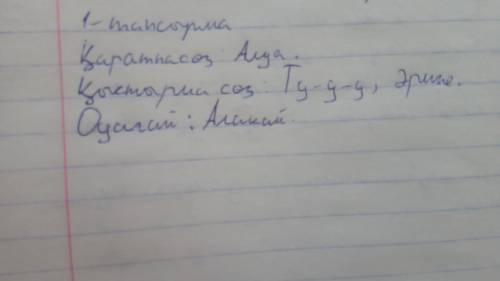 1-тапсырма
Қаратпасөз: Алуа.
Қыстырма сөз: Ту-у-у, әрине.
Одағай: Алақай.